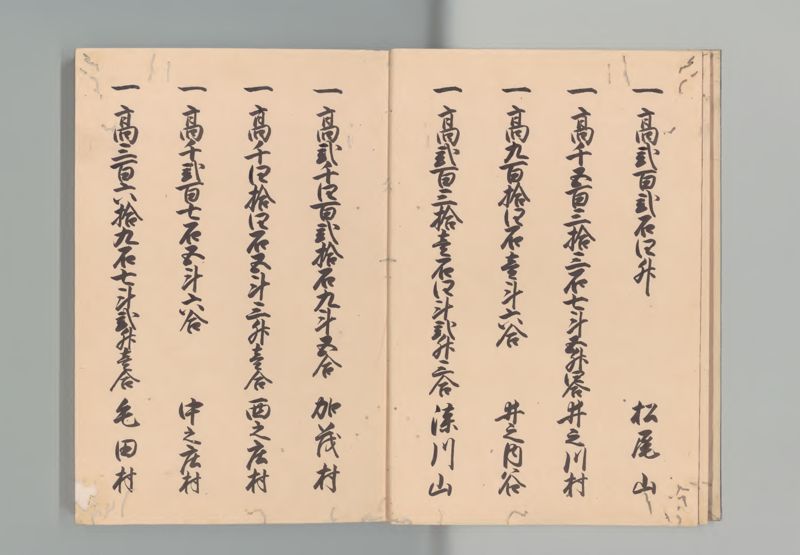 一高弐百弐石四升 松尾山
一高千五百三拾三石七斗五升四合 井之川村
一高九百拾四石壱斗六合 井之内谷
一高弐百三拾壱石四斗弐升三合 漆川山
一高弐千四百弐拾石九斗五合 加茂村
一高千四拾四石五斗三升壱合 西之庄村
一高千弐百七石五斗六合 中之庄村
一高三百六拾九石七斗弐升壱合 毛田村